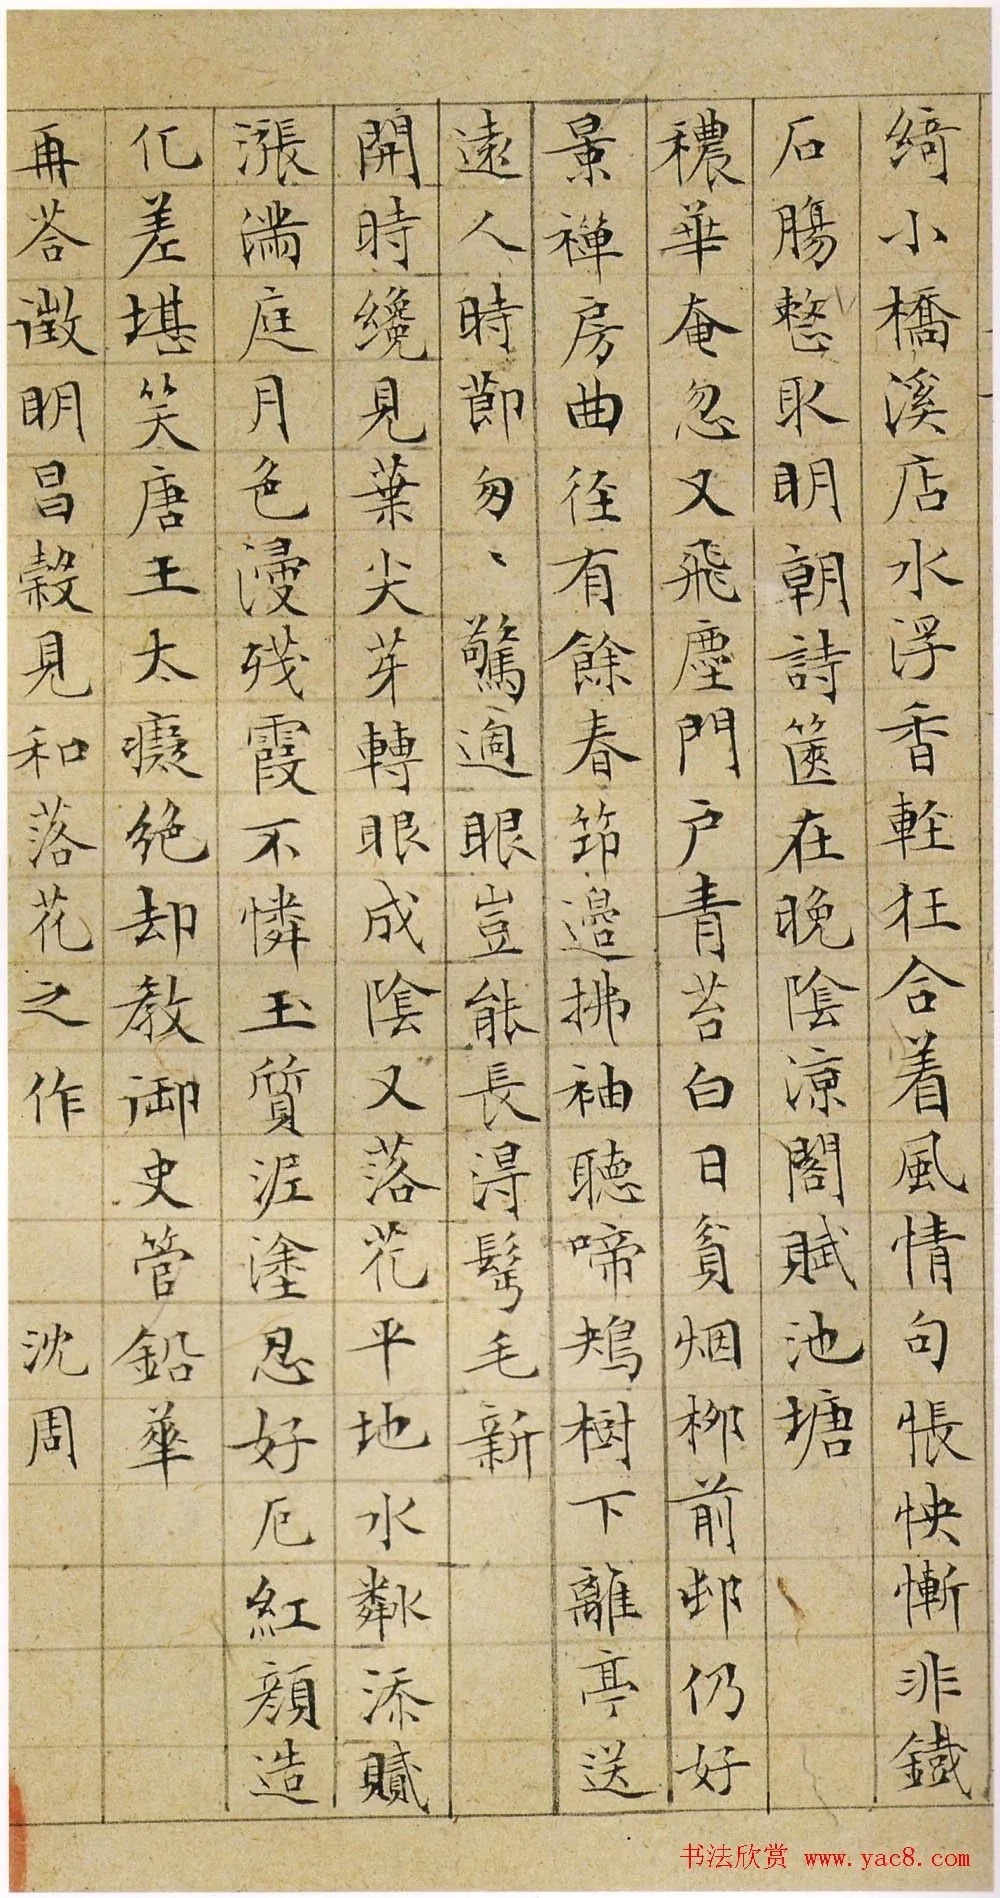 綺小橋溪店水浮香輕狂合着風情句悵怏慚非鐵
石腸愁取明朝詩篋在晚陰涼閣賦池塘
穠華奄忽又飛塵門户青苔白日貧烟柳前邨仍好
景禅房曲径有餘春笻邊拂袖聴啼鴂樹下離亭送
遠人時節匆〻驚過眼豈能長得髩毛新
開時纔見葉尖芽轉眼成陰又落花平地水粼添贰
漲滿庭月色漫残霞不憐玉質泥塗忍好厄紅顔造
化差堪笑唐王太癡絶却教御史管鉛華
再荅徵明昌穀見和落花之作 沈周
书法欣赏 www.yac8.com